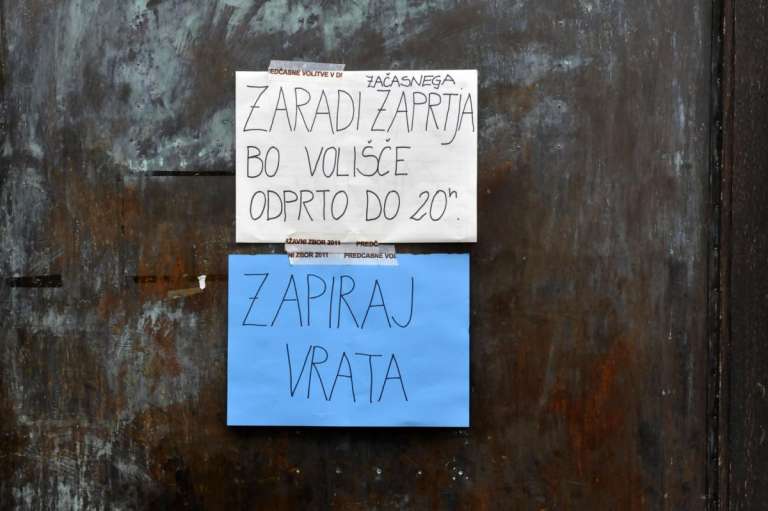 EDČASNE VOLITVE V D
ZAČASNEGA
ZARADI ZAPRTJA
BO VOLIŠČE
ODPRTO DO 20h.
ŽAVNI ZBOR 2011 PREDČ
NI ZBOR 2011 PREDČASNE VOL
ZAPIRAJ
VRATA